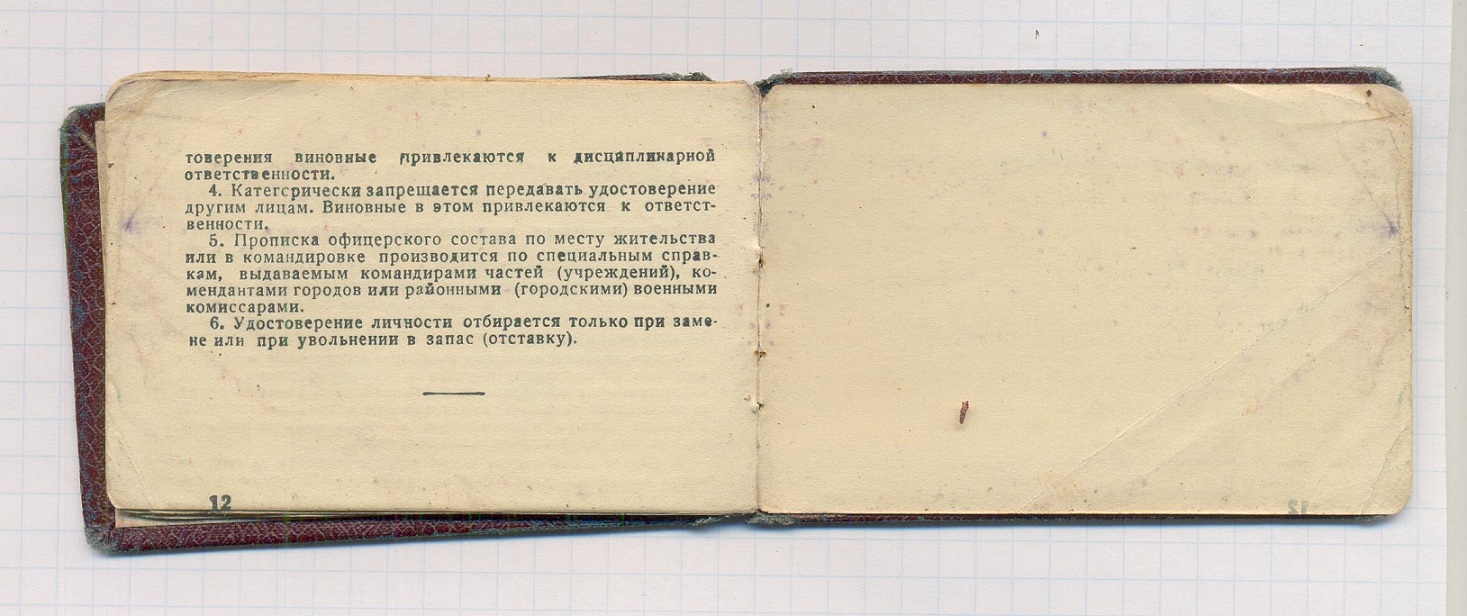 товерения виновные привлекаются к дисциплинарной
ответственности.
4. Категорически запрещается передавать удостоверение
другим лицам. Виновные в этом привлекаются к ответст-
венности.
5. Прописка офицерского состава по месту жительства
или в командировке производится по специальным справ-
кам, выдаваемым командирами частей (учреждений), ко-
мендантами городов или районными (городскими) военными
комиссарами.
6. Удостоверение личности отбирается только при заме-
не или при увольнении в запас (отставку).
12